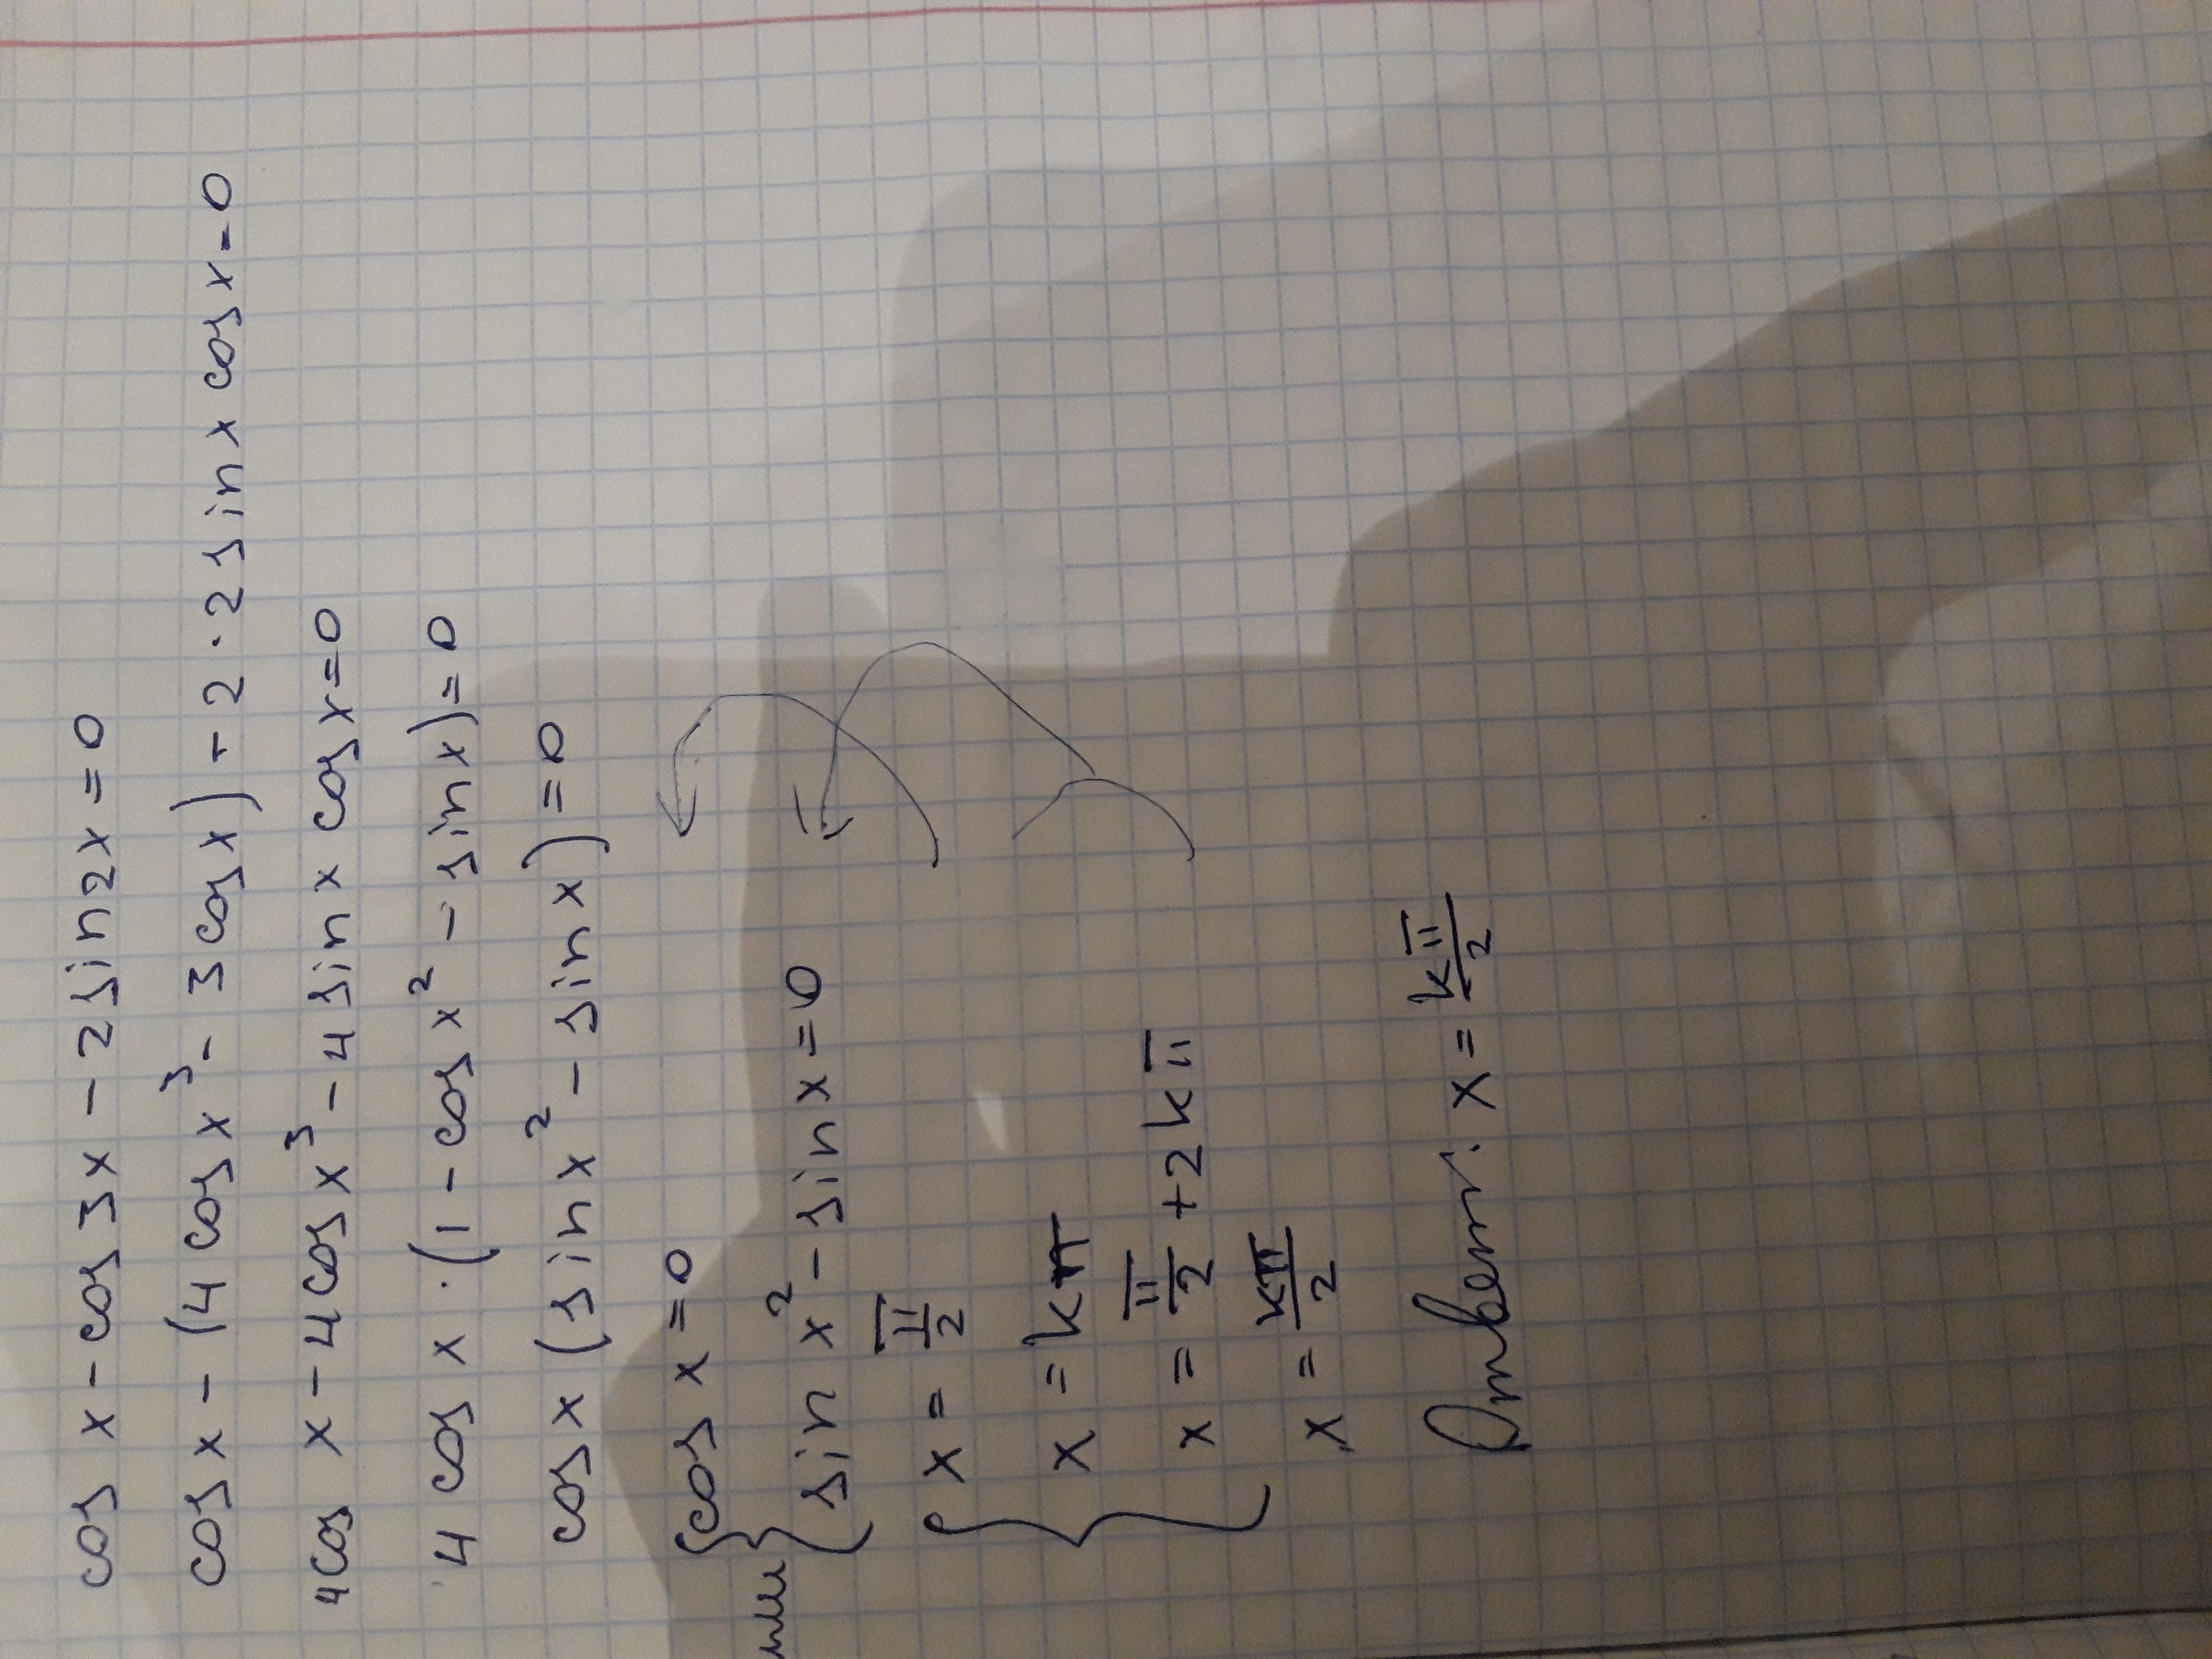 cos x - cos 3x - 2 sin 2x = 0
cos x - (4 cos x³ - 3 cos x) - 2 · 2 sin x cos x = 0
4 cos x - 4 cos x³ - 4 sin x cos x = 0
4 cos x · (1 - cos x² - sin x) = 0
cos x (sin x² - sin x) = 0
cos x = 0
или
sin x² - sin x = 0
x = π/2
x = kπ
x = π/2 + 2kπ
x = kπ/2
Ответ: x = kπ/2